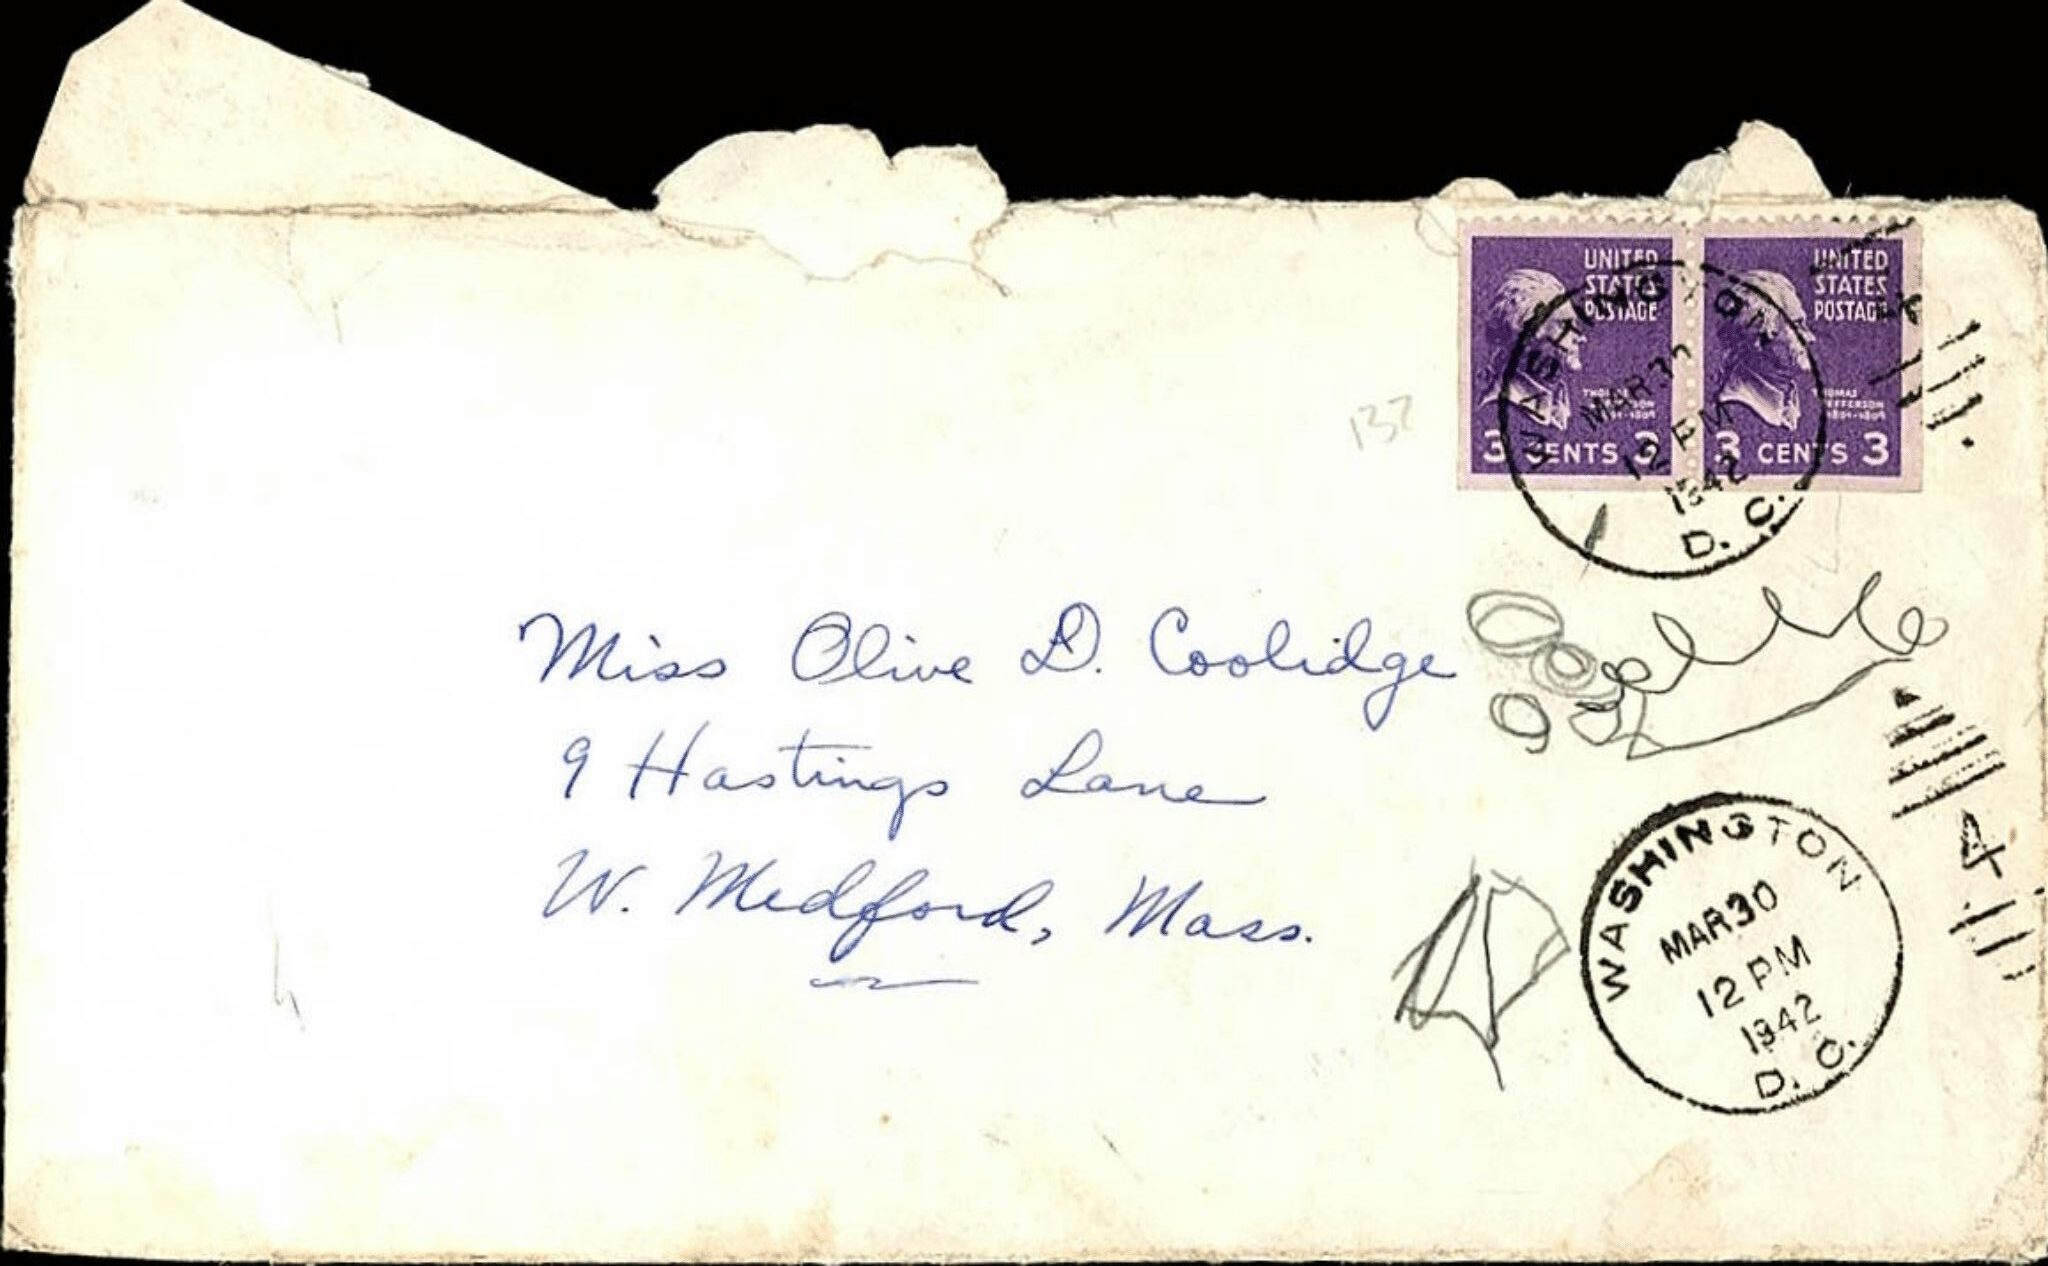 UNITED STATES POSTAGE
THOMAS JEFFERSON
1801-1809
3 CENTS 3
UNITED STATES POSTAGE
THOMAS JEFFERSON
1801-1809
3 CENTS 3
WASHINGTON D. C.
MAR 30
12 PM
1942
137
Miss Olive D. Coolidge
9 Hastings Lane
W. Medford, Mass.
WASHINGTON D. C.
MAR 30
12 PM
1942
4